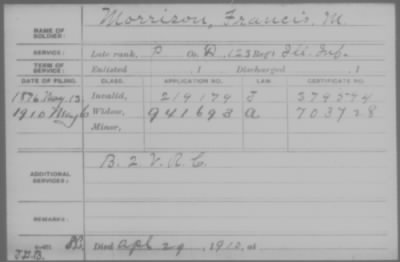 NAME OF SOLDIER: Morrison, Francis. M.
SERVICE: Late rank, P Co. D, 123 Reg't Ill. Inf.
TERM OF SERVICE: Enlisted , 1 Discharged , 1
DATE OF FILING. CLASS. APPLICATION NO. LAW. CERTIFICATE NO.
1876 Invalid, 219179 379574
1910 May 6 Widow, 941693 a 703728
Minor,
ADDITIONAL SERVICES: B. 2 V. R. C.
REMARKS:
Died apl 29, 1910, at